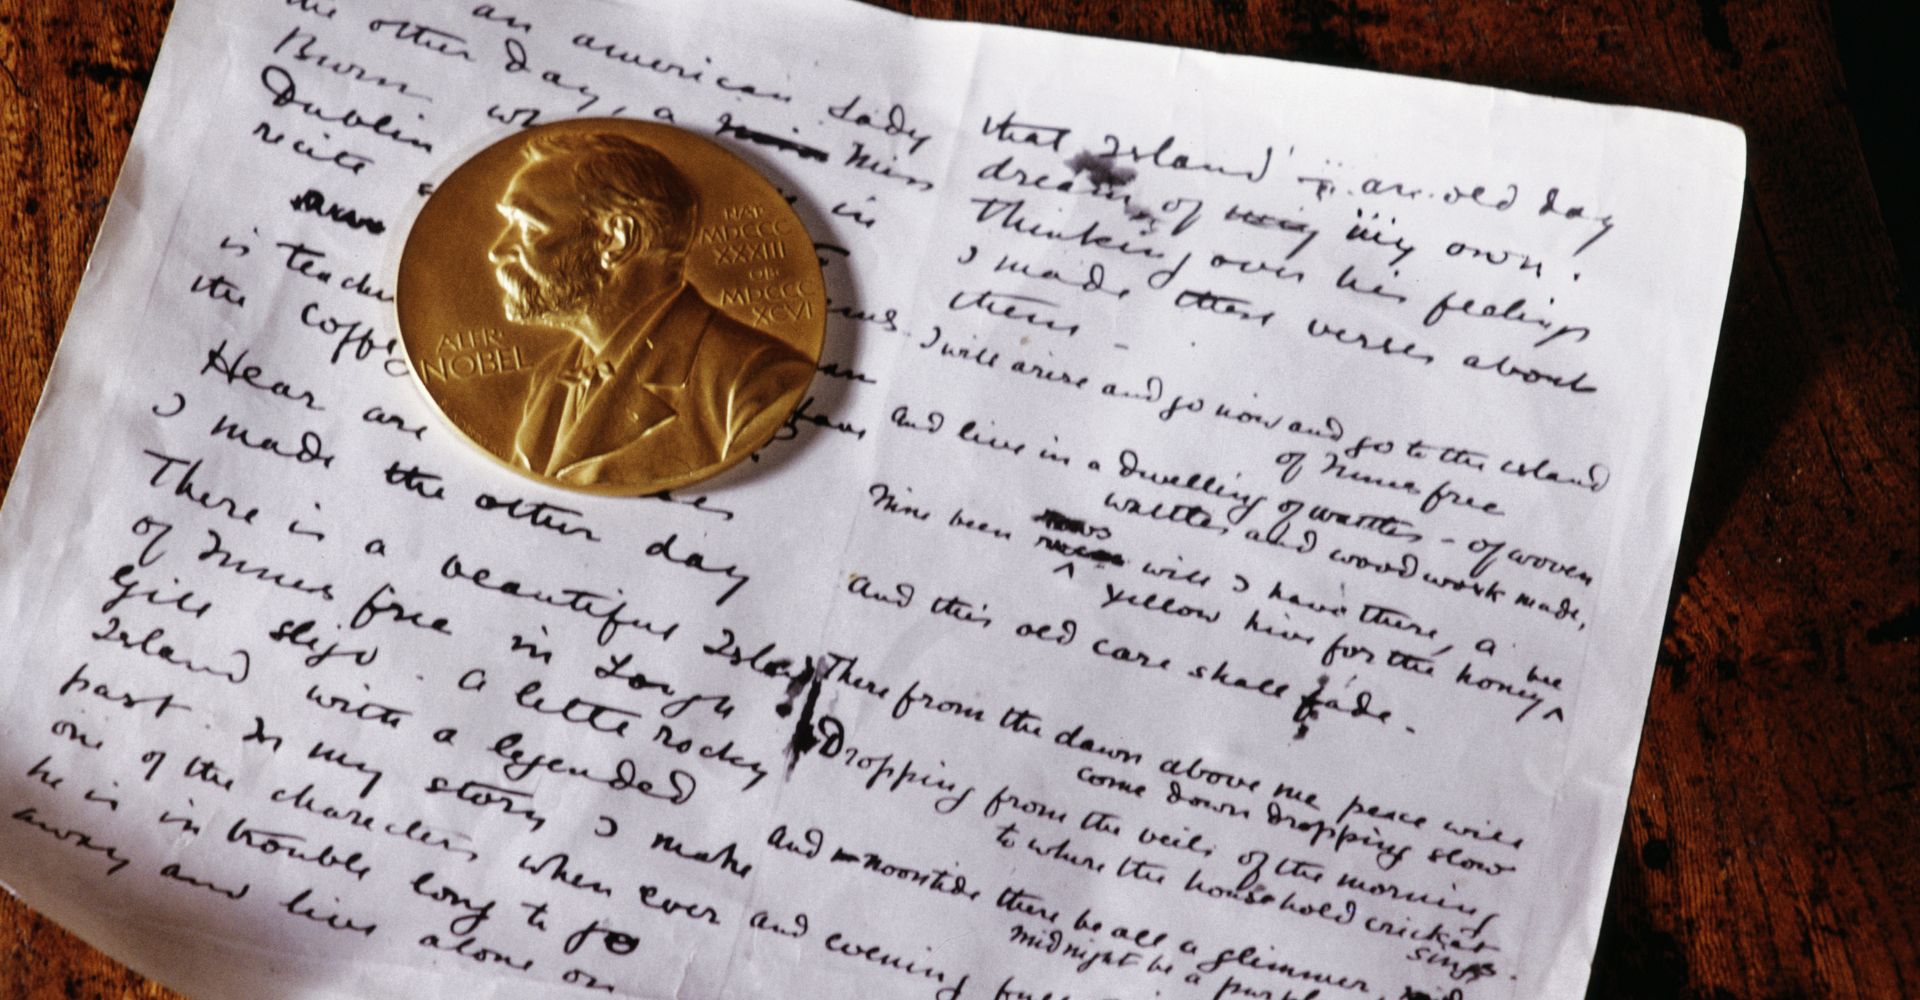 an american Lady
the other day, a Miss
Burn in
Dublin
recite
is
the
Hear are
I made the other day
There is a beautiful Island
of Innis free in Lough
Gill Sligo. A little rocky
Island with a legended
past. In my story I make
one of the characters when ever
he is in trouble long to go
away and live alone on
ALFR·
NOBEL
NAT·
MDCCC
XXXIII
OB·
MDCCC
XCVI
that Island — an old day
dream of my my own.
Thinking over his feelings
I made these verses about
them —
I will arise and go now and go to the island
of Innis free
And live in a dwelling of wattles – of woven
wattles and wood work made,
Nine bean rows will I have there, a
yellow hive for the honey bee
And this old care shall fade.
There from the dawn above me peace will
come down dropping slow
Dropping from the veils of the morning
to where the household cricket
sings.
And noontide there be all a glimmer,
midnight be a
and evening